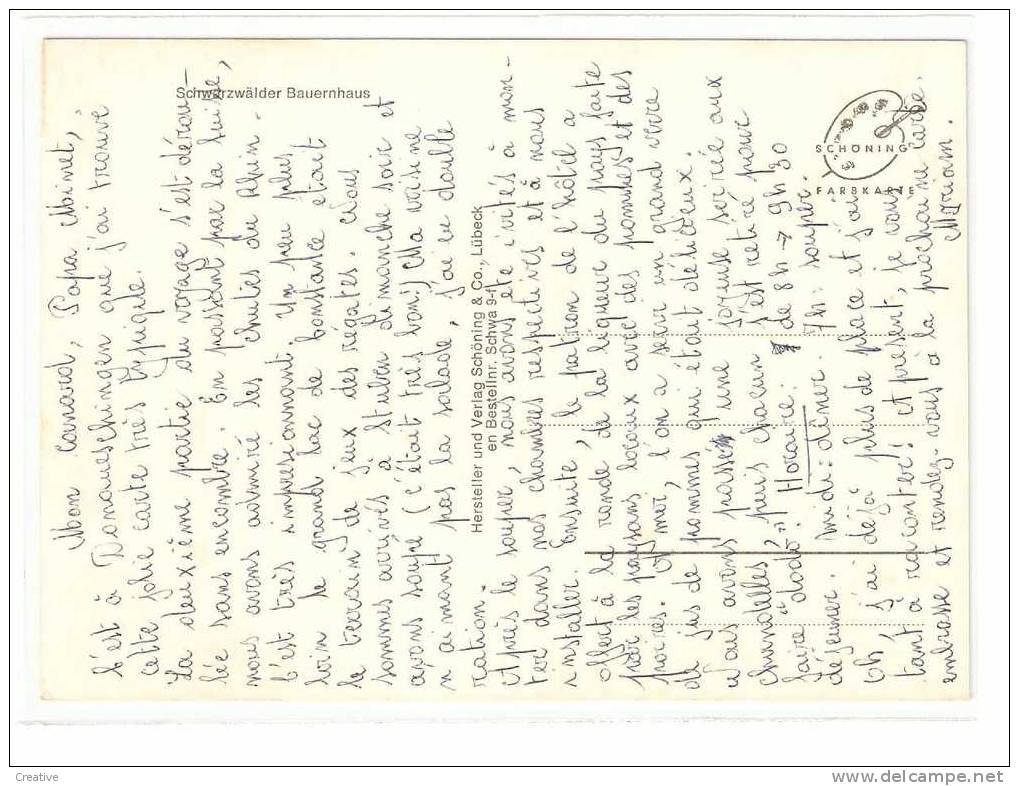 Mon canard, Papa Minet,
C'est à Donaueschingen que j'ai trouvé
cette jolie carte très typique.
La deuxième partie du voyage s'est dérou-
lée sans encombre. En passant par la Suisse,
nous avons admiré les chutes du Rhin.
C'est très impresionnant. Un peu plus
loin le grand lac de Constance était
le terrain de jeux des régates. Nous
sommes arrivés à Stuben dimanche soir et
avons soupé (c'était très bon!) Ma voisine
n'aimant pas la salade, j'ai eu double
ration.
Après le souper, nous avons été invités à mon-
ter dans nos chambres respectives et à nous
installer. Ensuite, le patron de l'hôtel a
offert à la ronde de la liqueur du pays faite
par les paysans locaux avec des pommes et des
poires. A moi, l'on a servi un grand verre
de jus de pommes qui était délicieux.
Nous avons passé une joyeuse soirée aux
chandelles, puis chacun s'est retiré pour
faire "dodo". Horaire: de 8h → 9h30
déjeuner. midi: dîner 7h: souper.
Oh j'ai déjà plus de place et j'ai
tant à raconter! A présent, je vous
embrasse et rendez-vous à la prochaine carte.
Myriam.
Schwarzwälder Bauernhaus
Hersteller und Verlag Schöning & Co., Lübeck
en Bestellnr. Schwa 9-f
SCHÖNING
FARBKARTE
Creative
www.delcampe.net